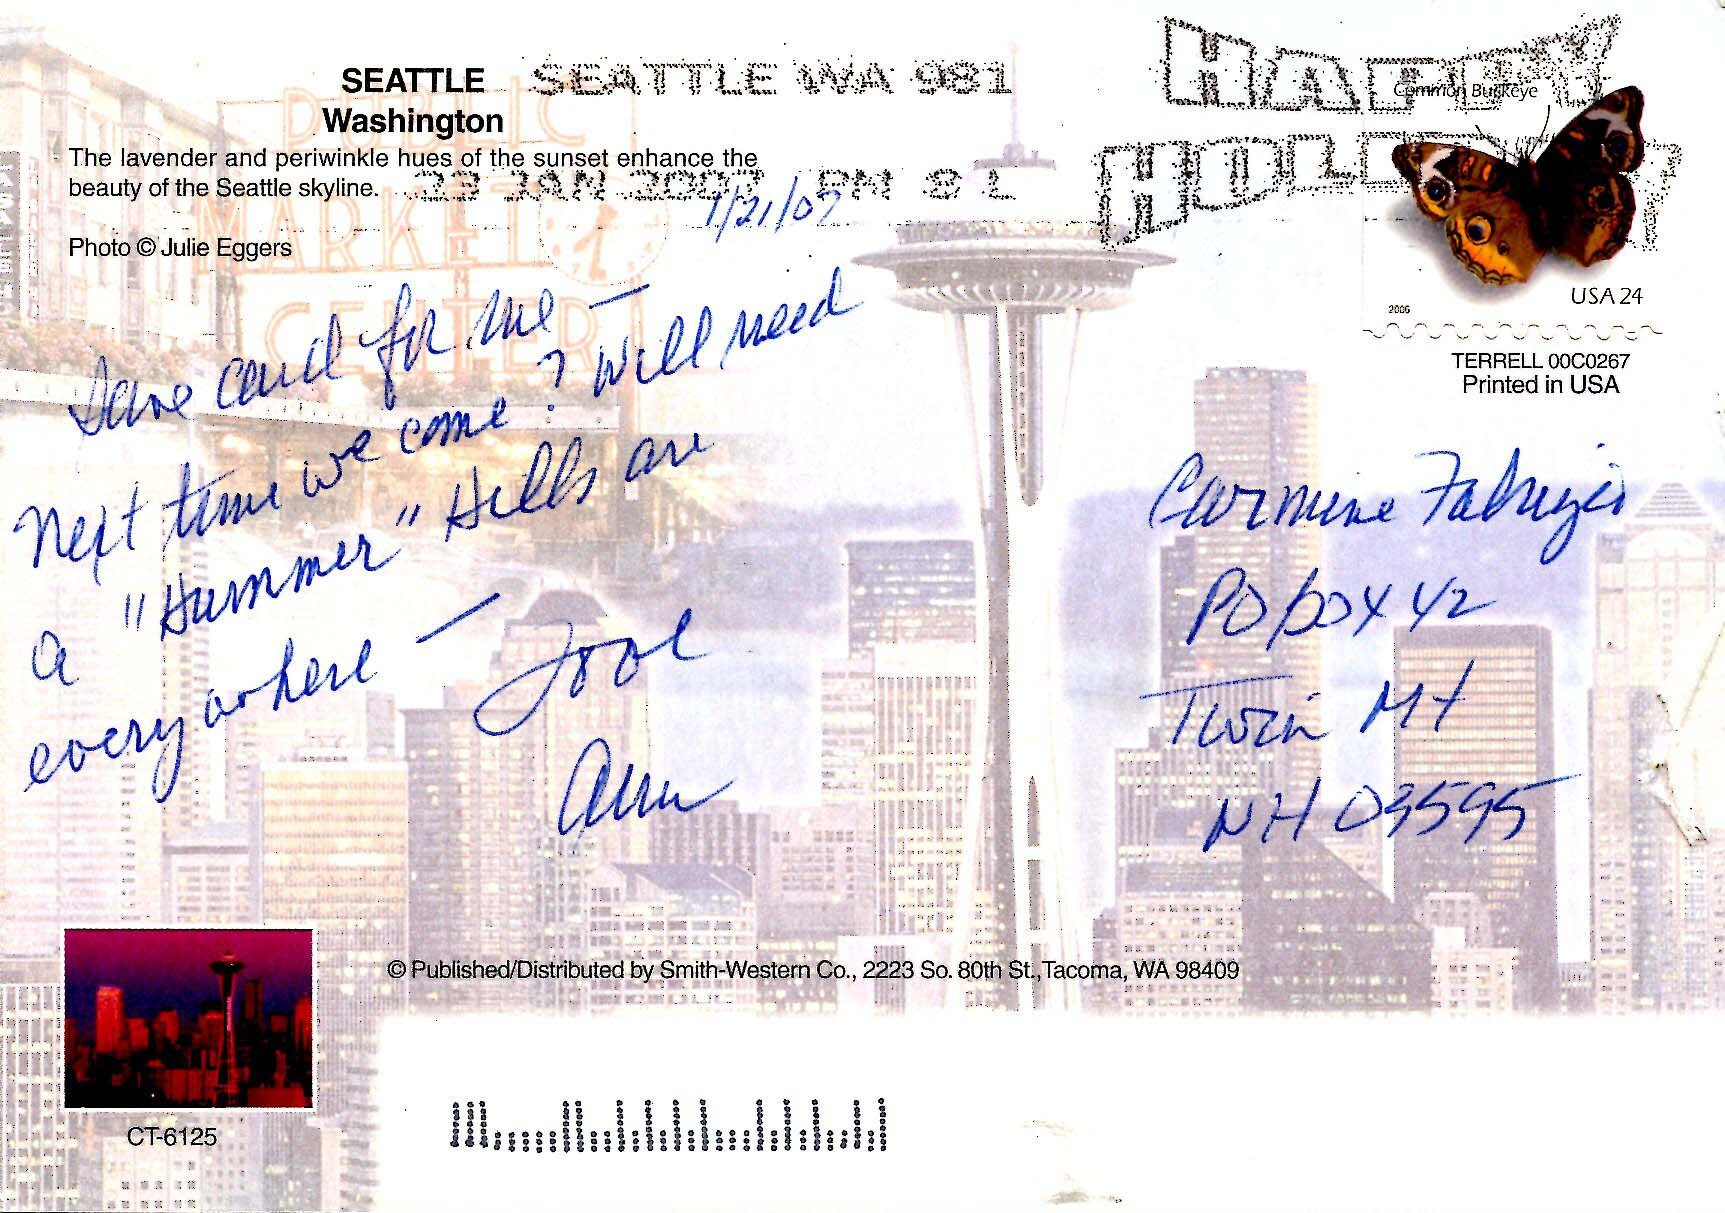 SEATTLE
Washington
The lavender and periwinkle hues of the sunset enhance the
beauty of the Seattle skyline.
Photo © Julie Eggers
SEATTLE WA 981
23 JAN 2007 PM 8 L
HAPPY
HOLIDAY
Common Buckeye
2006
USA 24
TERRELL 00C0267
Printed in USA
PUBLIC
MARKET
CENTER
1/21/07
Save card for me —
Next time we come? Will need
a "Hummer" Hills are
everywhere —
Ann
Carmine Fabrizio
PO Box 42
Twin Mt
NH 03595
© Published/Distributed by Smith-Western Co., 2223 So. 80th St., Tacoma, WA 98409
CT-6125